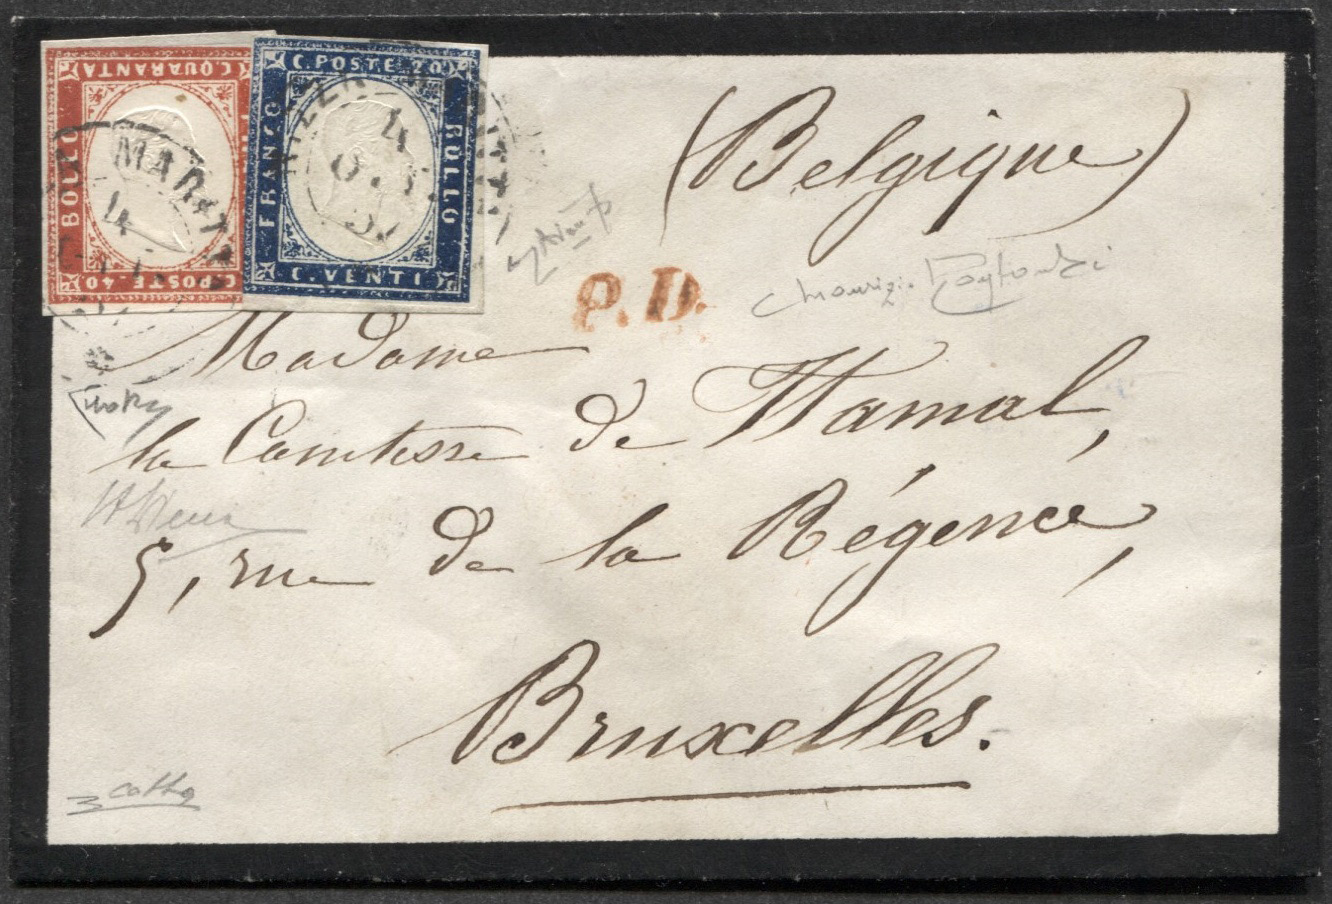 C. QUARANTA
BOLLO
C. POSTE 40
C. POSTE 20
FRANCO
BOLLO
C. VENTI
NIZZA MARIT
4
MARIT
4
(Belgique)
P.D.
Madame
la Comtesse de Hamal,
5, rue de la Régence,
Bruxelles.